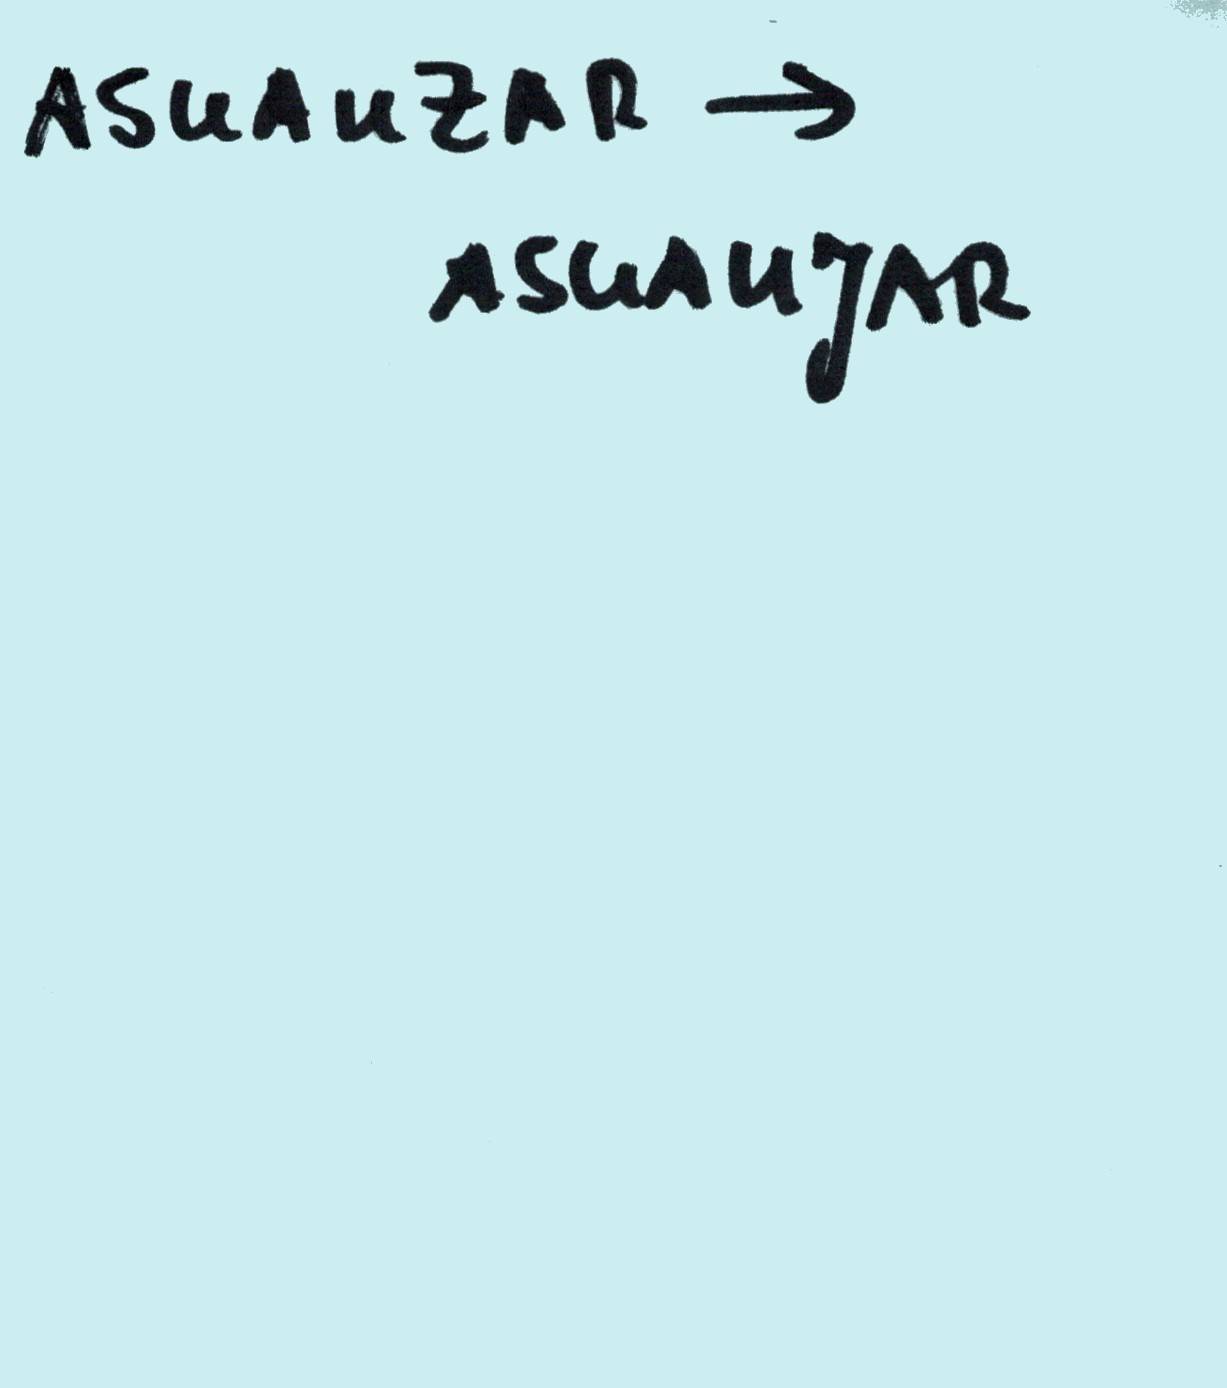 ASUAUZAR →
ASUAUJAR